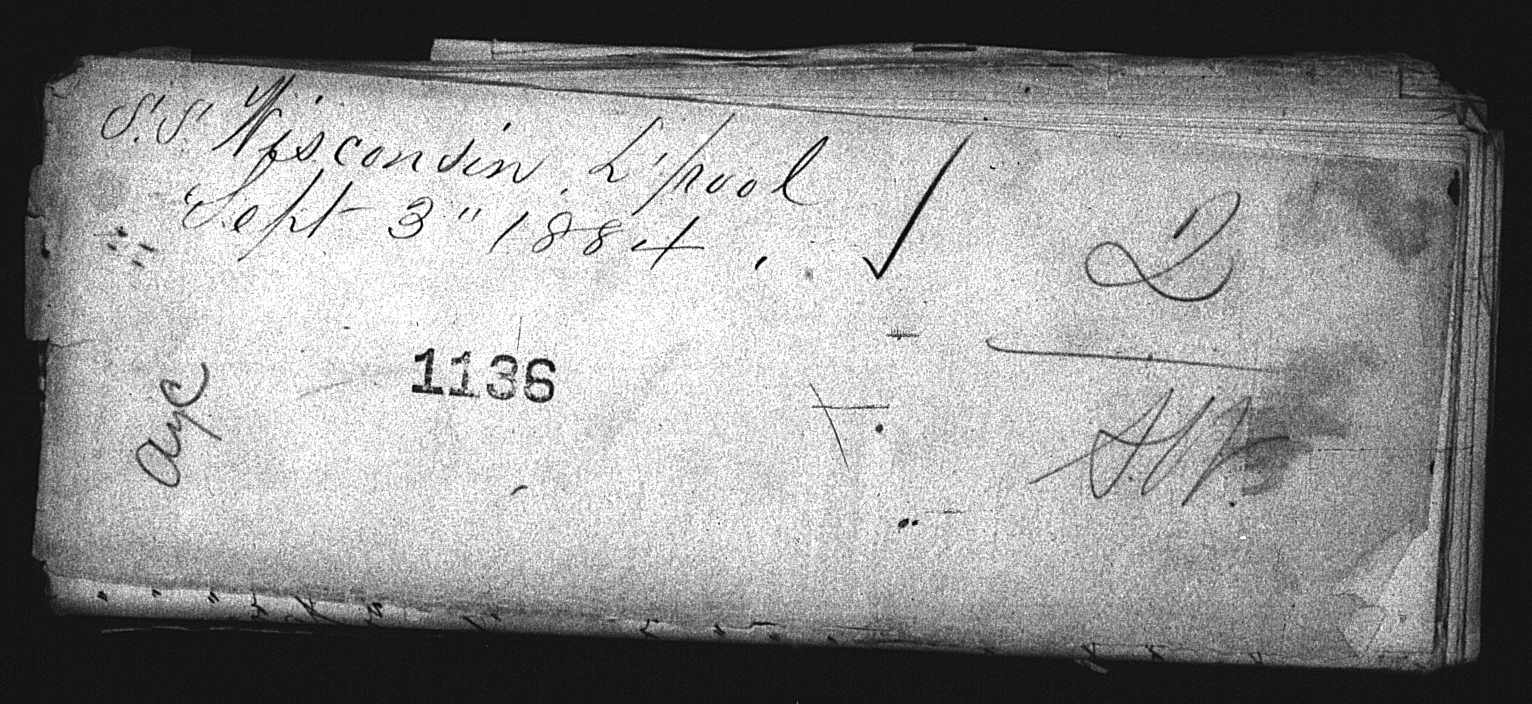 S.S. Wisconsin. L'pool
Sept 3" 1884.
1136
ayc
D